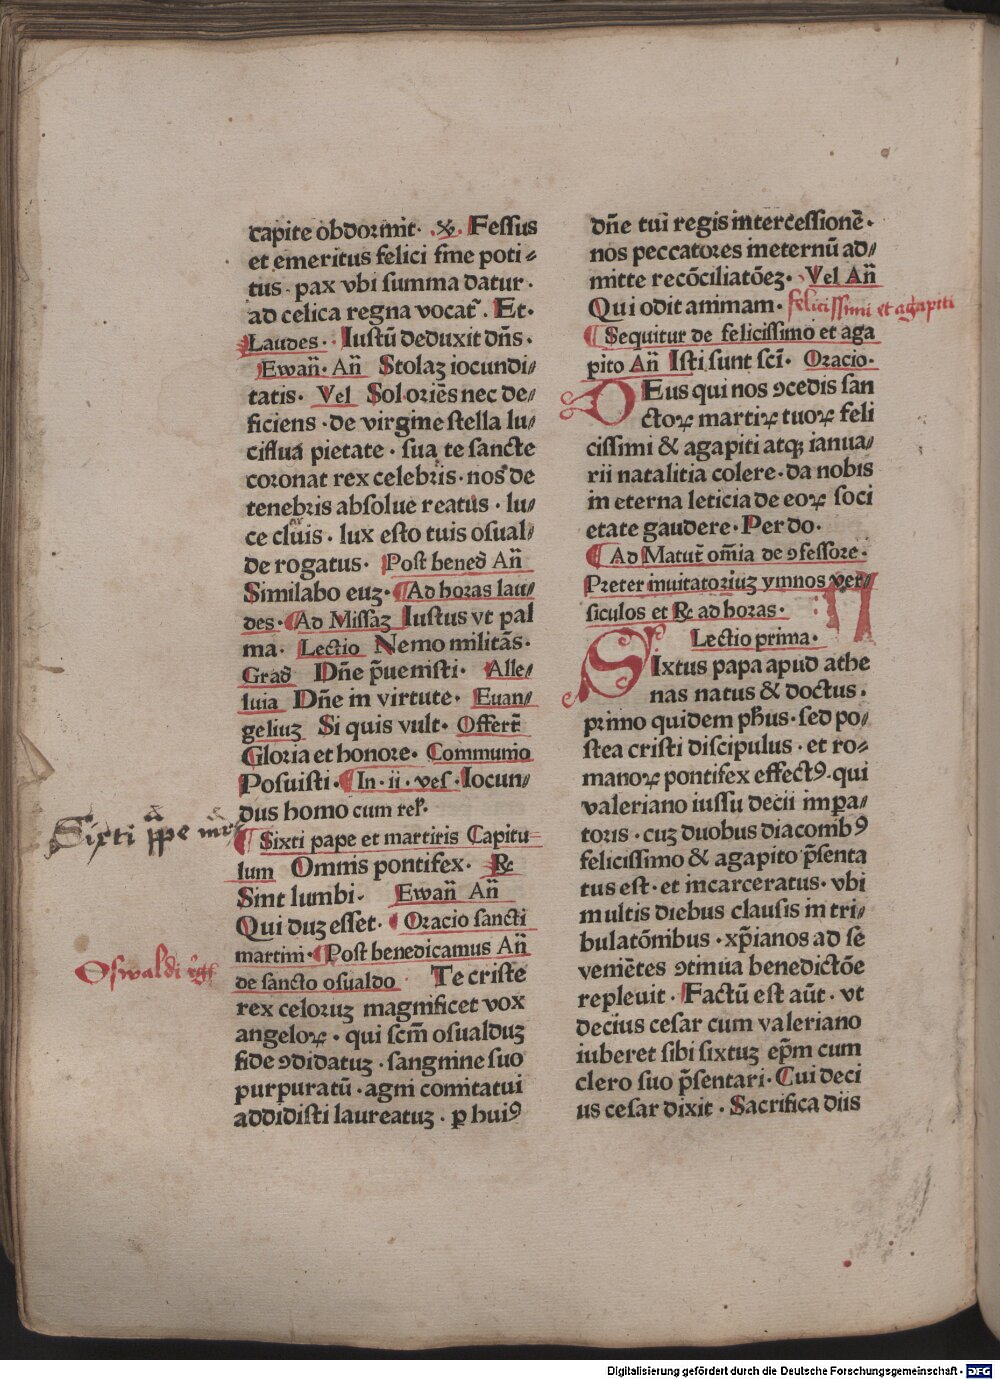 capite obdormit · ꝟ. Fessus
et emeritus felici fine poti⸗
tus · pax vbi summa datur ·
ad celica regna vocat᷑ . Et·
Laudes · Iustū deduxit dn̄s ·
Ewan̄ · An̄ Stolaꝫ iocundi⸗
tatis · Vel Sol oriēs nec de⸗
ficiens · de virgine stella lu⸗
ciflua pietate · sua te sancte
coronat rex celebris · nos de
tenebris absolue reatus · lu⸗
ce cluis · lux esto tuis osual⸗
de rogatus · Post bened̄ An̄
Similabo euꝫ · Ad horas lau⸗
des · Ad Missaꝫ Iustus vt pal
ma · Lectio Nemo militās ·
Grad̄ Dn̄e p̄uenisti · Alle⸗
luia Dn̄e in virtute · Euan⸗
geliuꝫ Si quis vult · Offert̄
Gloria et honore · Communio
Posuisti · In · ii · ves · Iocun⸗
dus homo cum rel̉ ·
Sixti pp̄e mr̄is
Sixti pape et martiris Capitu⸗
lum Omnis pontifex · ℞
Sint lumbi · Ewan̄ An̄
Qui duꝫ esset · Oracio sancti
martini · Post benedicamus An̄
Oswaldi rḡs
de sancto osualdo Te criste
rex celoruꝫ magnificet vox
angeloꝝ · qui scm̄ osualduꝫ
fide ꝯdidatuꝫ · sanguine suo
purpuratū · agni comitatui
addidisti laureatuꝫ · ꝑ huiꝰ
dn̄e tui regis intercessionē ·
nos peccatores ineternū ad⸗
mitte recōciliatōeꝫ · Vel An̄
Qui odit animam · felicissimi et agapiti
Sequitur de felicissimo et aga
pito An̄ Isti sunt sci̅ · Oracio ·
DEus qui nos ꝯcedis san
ctoꝝ martiꝝ tuoꝝ feli
cissimi & agapiti atqꝫ ianua⸗
rii natalitia colere · da nobis
in eterna leticia de eoꝝ soci
etate gaudere · Per do ·
Ad Matut̄ om̄ia de ꝯfessore ·
Preter inuitatoriuꝫ ymnos ver⸗
siculos et ℞ ad horas ·
Lectio prima ·
SIxtus papa apud athe
nas natus & doctus ·
primo quidem ph̄us · sed po⸗
stea cristi discipulus · et ro⸗
manoꝝ pontifex effectꝰ · qui
valeriano iussu decii impa⸗
toris · cuꝫ duobus diaconibꝰ
felicissimo & agapito p̄senta
tus est · et incarceratus · vbi
multis diebus clausis in tri⸗
bulatōnibus · xp̄ianos ad se
veniētes ꝯtinua benedictōe
repleuit · Factū est aūt · vt
decius cesar cum valeriano
iuberet sibi sixtuꝫ ep̄m cum
clero suo p̄sentari · Cui deci
us cesar dixit · Sacrifica diis
Digitalisierung gefördert durch die Deutsche Forschungsgemeinschaft · DFG